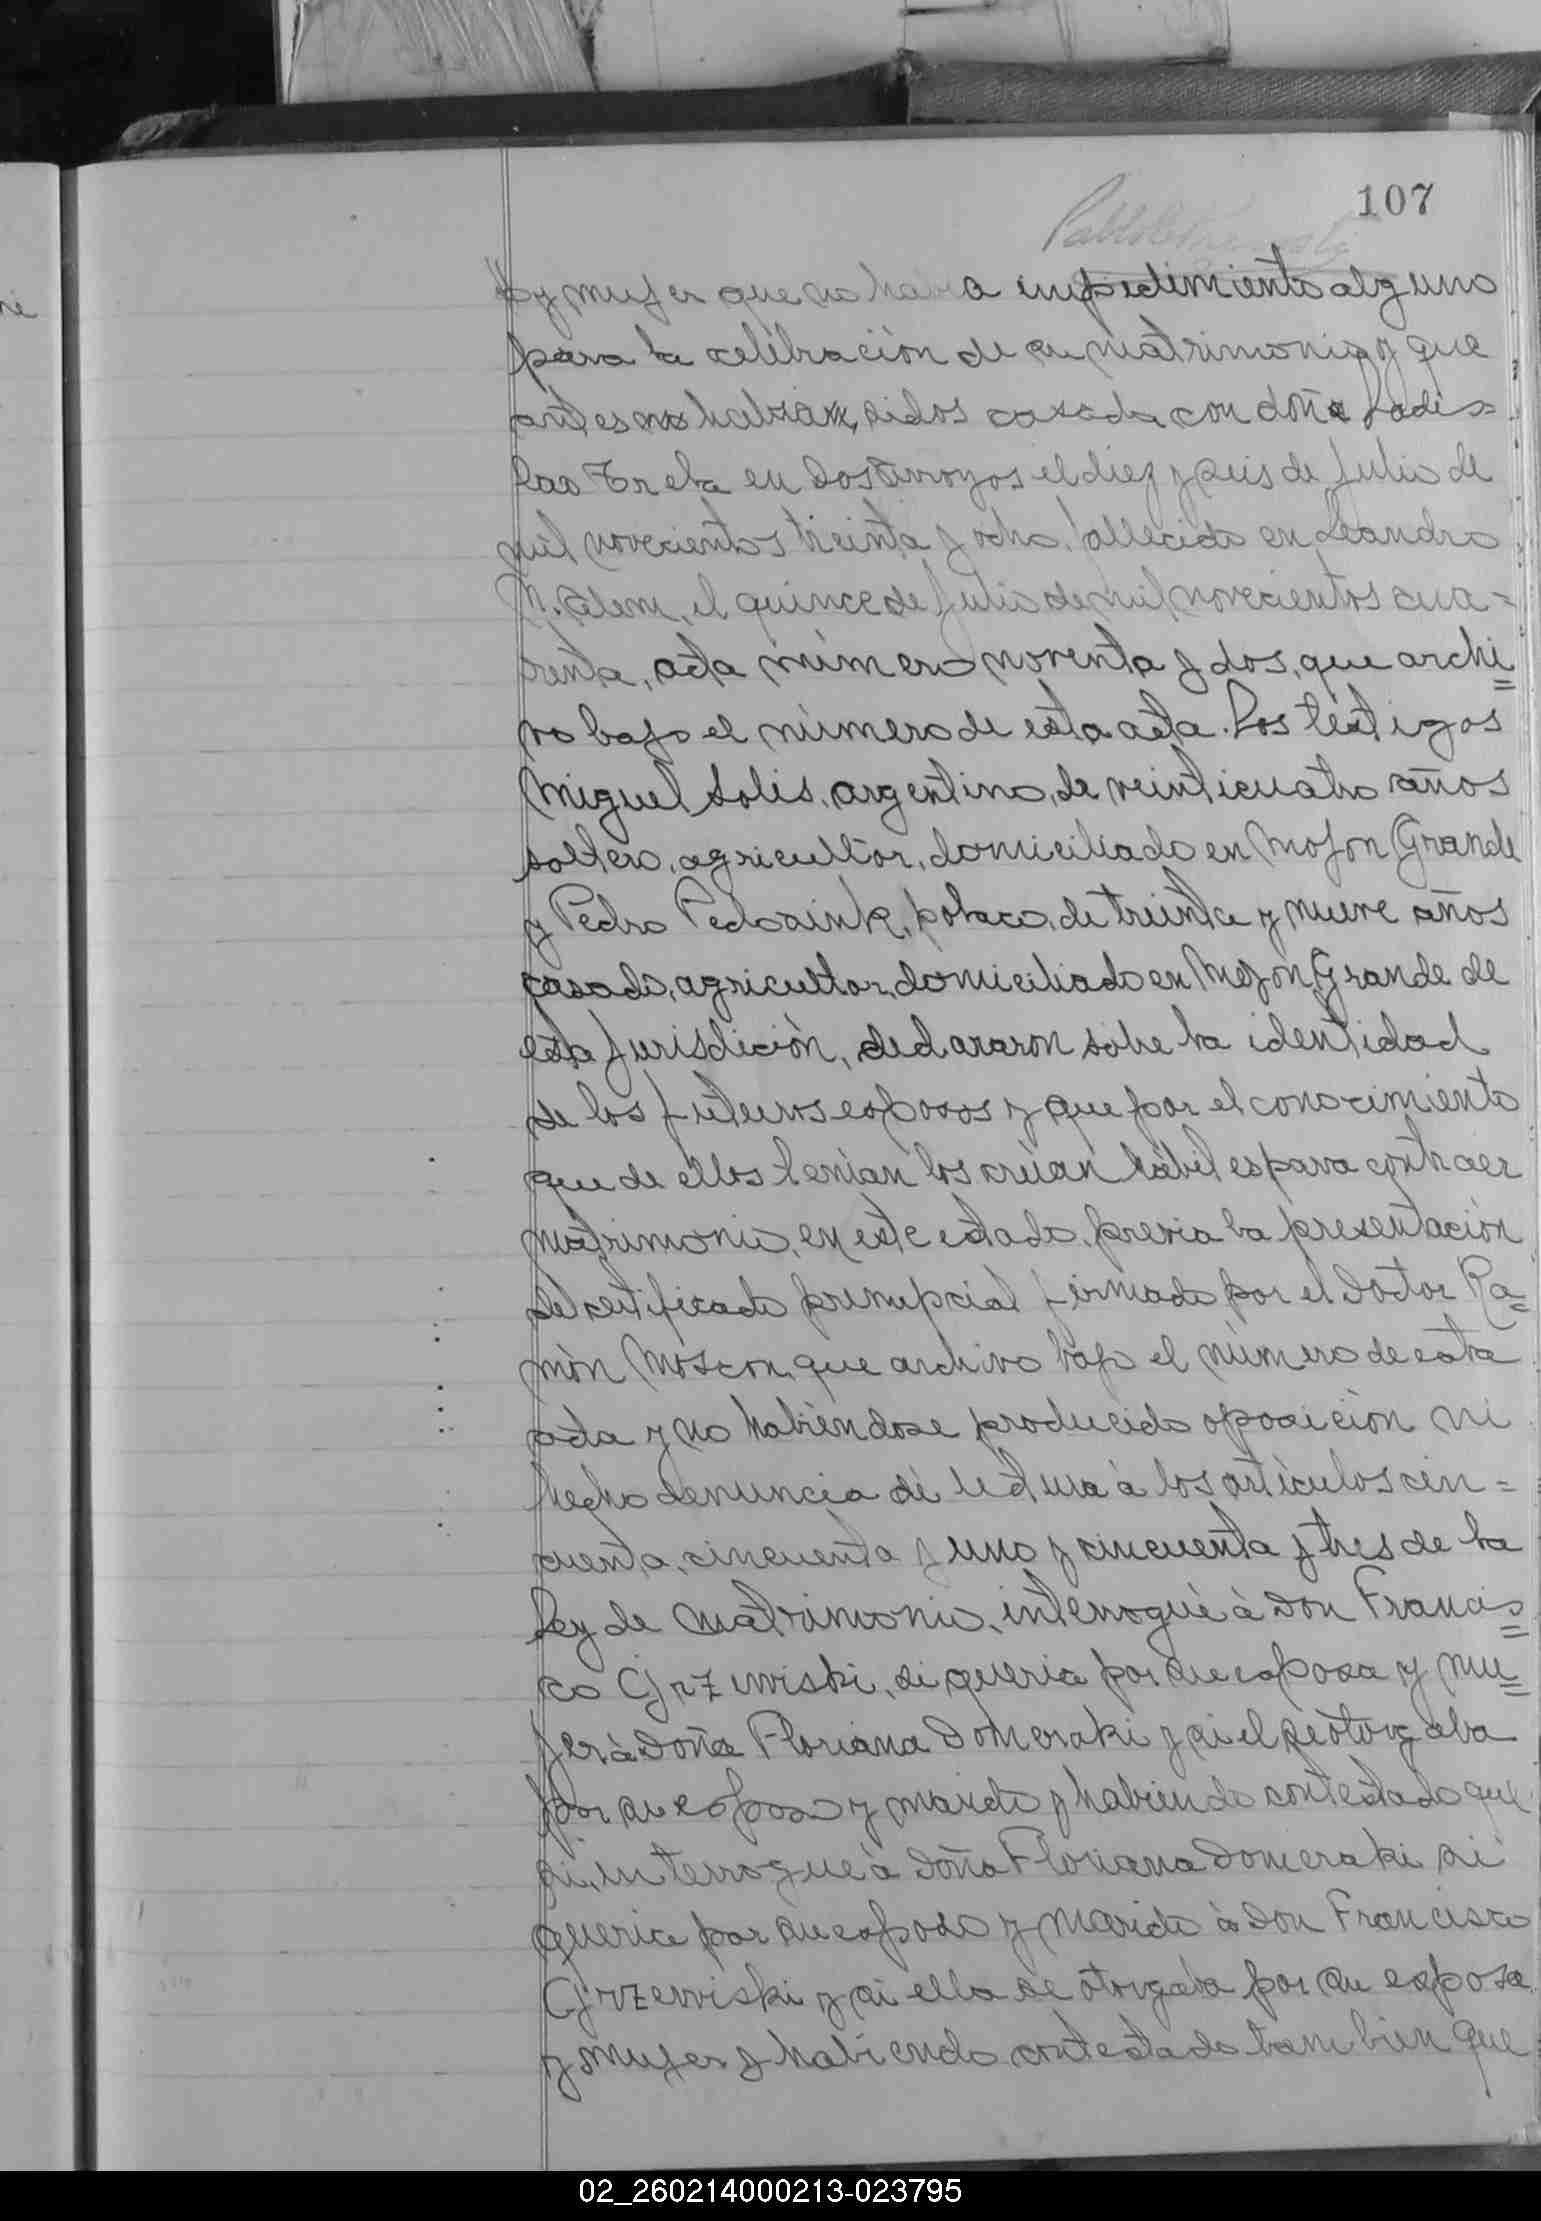 107
y mujer que no habia impedimiento alguno
para la celebración de su matrimonio y que
antes no habian sidos casada con doña Ladis=
lao Trela en Dos Arroyos el diez y seis de Julio de
mil novecientos treinta y ocho, fallecido en Leandro
N. Alem, el quince de Julio de mil novecientos cua=
renta, acta número noventa y dos, que archi=
vo bajo el número de esta acta. Los testigos
Miguel Solis, argentino, de veinticuatro años
soltero, agricultor, domiciliado en Mojon Grande
y Pedro polaco, de treinta y nueve años
casado, agricultor, domiciliado en Mojon Grande de
esta jurisdición, declararon sobre la identidad
de los futuros esposos y que por el conocimiento
que de ellos tenian los creian hábiles para contraer
matrimonio, en este estado, previa la presentación
del certificado prenupcial firmado por el Doctor Ra=
món Moscon, que archivo bajo el número de esta
acta y no habiéndose producido oposición ni
hecho denuncia dí lectura á los artículos cin=
cuenta, cincuenta y uno y cincuenta y tres de la
Ley de Matrimonio, interrogué á Don Francis=
co Grzewiski, si queria por su esposa y mu=
jer á Doña Floriana Domeraki y si el se otorgaba
por su esposo y marido y habiendo contestado que
si, interrogué á Doña Floriana Domeraki si
queria por su esposo y marido á Don Francisco
Grzewiski y si ella se otorgaba por su esposa
y mujer y habiendo contestado tambien que
02_260214000213-023795